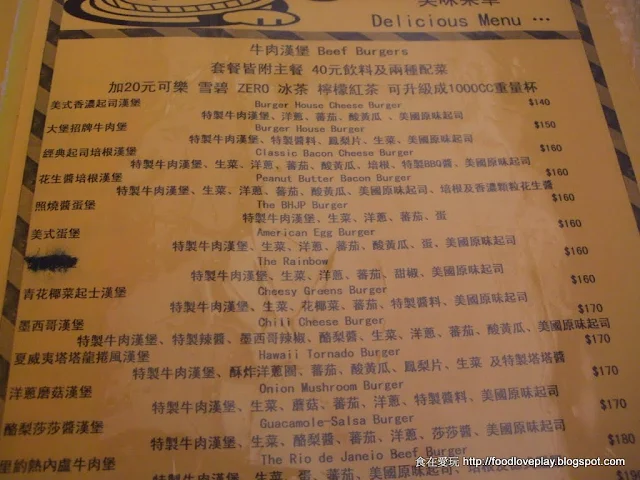 美味菜單
Delicious Menu …
牛肉漢堡 Beef Burgers
套餐皆附主餐 40元飲料及兩種配菜
加20元可樂 雪碧 ZERO 冰茶 檸檬紅茶 可升級成1000CC重量杯
美式香濃起司漢堡 Burger House Cheese Burger $140
特製牛肉漢堡、洋蔥、蕃茄、酸黃瓜、美國原味起司
大堡招牌牛肉堡 Burger House Burger $150
特製牛肉漢堡、特製醬料、鳳梨片、生菜、美國原味起司
經典起司培根漢堡 Classic Bacon Cheese Burger $160
特製牛肉漢堡、生菜、洋蔥、蕃茄、酸黃瓜、培根、特製BBQ醬、美國原味起司
花生醬培根漢堡 Peanut Butter Bacon Burger $160
特製牛肉漢堡、生菜、洋蔥、蕃茄、酸黃瓜、美國原味起司、培根及香濃顆粒花生醬
照燒醬蛋堡 The BHJP Burger $160
特製牛肉漢堡、生菜、洋蔥、蕃茄、蛋
美式蛋堡 American Egg Burger $160
特製牛肉漢堡、生菜、洋蔥、蕃茄、酸黃瓜、蛋、美國原味起司
The Rainbow $160
特製牛肉漢堡、生菜、洋蔥、蕃茄、甜椒、美國原味起司
青花椰菜起士漢堡 Cheesy Greens Burger $160
特製牛肉漢堡、生菜、花椰菜、蕃茄、特製醬料、美國原味起司
墨西哥漢堡 Chili Cheese Burger $170
特製牛肉漢堡、特製辣醬、墨西哥辣椒、酪梨醬、生菜、洋蔥、蕃茄、酸黃瓜、美國原味起司
夏威夷塔塔龍捲風漢堡 Hawaii Tornado Burger $170
特製牛肉漢堡、酥炸洋蔥圈、蕃茄、酸黃瓜、鳳梨片、生菜 及特製塔塔醬
洋蔥磨菇漢堡 Onion Mushroom Burger $170
特製牛肉漢堡、生菜、蘑菇、蕃茄、洋蔥、特製醬料、美國原味起司
酪梨莎莎醬漢堡 Guacamole-Salsa Burger $170
特製牛肉漢堡、生菜、酪梨醬、蕃茄、洋蔥、莎莎醬、美國原味起司
里約熱內盧牛肉堡 The Rio de Janeio Beef Burger $180
特製牛肉漢堡、生菜、蛋、蕃茄、美國原味起司、培根
$190
食在愛玩 http://foodloveplay.blogspot.com/